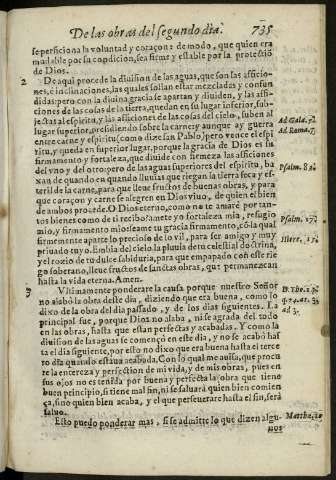 De las obras del segundo dia. 735
se perficiona la voluntad y coraçon: de modo, que quien era
mudable por su condicion, sea firme y estable por la protectiō
de Dios.
2 De aqui procede la diuision de las aguas, que son las afficio-
nes, è inclinaciones, las quales solian estar mezcladas y confun
didas: pero con la diuina gracia se apartan y diuiden, y las affi-
ciones de las cosas de la tierra, quedan en su lugar inferior, sub-
jectas al espiritu, y las afficiones de las cosas del cielo, suben al
lugar superior, presidiendo sobre la carne: y aunque ay guerra
entre carne y espiritu, con o dize san Pablo; pero vence el espi
ritu, y queda en superior lugar, porque la gracia de Dios es su
firmamento y fortaleza, que diuide con firmeza las afficiones
del vno y del otro: pero de las aguas superiores del espiritu, ba
xan de quando en quando lluuias que riegan la tierra seca y es-
teril de la carne, para que lleue fructos de buenas obras, y para
que coraçon y carne se alegren en Dios viuo, de quien el bien
de ambos procede. O Dios eterno, como no te amarè por tan-
tos bienes como de ti recibo? amete yo fortaleza mia, refugio
mio, y firmamento mio: se ame tu gracia firmamento, cō la qual
firmemente aparte lo precioso de lo vil, para ser amigo y muy
priuado tuyo. Embia del cielo la pluuia de tu celestial doctrina,
y el rozio de tu dulce sabiduria, para que empapado con este rie
go soberano, lleue fructos de sanctas obras, que permanezcan
hasta la vida eterna. Amen.
3 Vltimamente ponderarè la causa porque nuestro Señor
no alabò la obra deste dia, diziendo que era buena, como lo
dixo de la obra del dia passado, y de los dias siguientes. La
principal fue, porque Dios no alaba, ni se agrada del todo
en las obras, hasta que estan perfectas y acabadas. Y como la
diuision de las aguas se començò en este dia, y no se acabò has
ta el dia siguiente, por esto no dixo que era buena hasta el terce
ro dia quando estaua acabada. Con lo qual me auisa, que procu
re la entereza y perfection de mi vida, y de mis obras, pues en
sus ojos no es tenida por buena y perfecta la obra que tiene
buen principio, si tiene mal fin, ni se saluarà quien bien comien
ça, sino quien bien acaba, y el que perseuerare hasta el fin, serà
saluo.
Esto puedo ponderar mas, si se admitte lo que dizen algu-
nos
Ad Gala. 5.
Ad Roma. 7.
Psalm. 83.
Psalm. 17.
Hiere. 15.
D. Tho. 1. p.
q. 74. ar. 3.
ad 3.
Matthę. 10